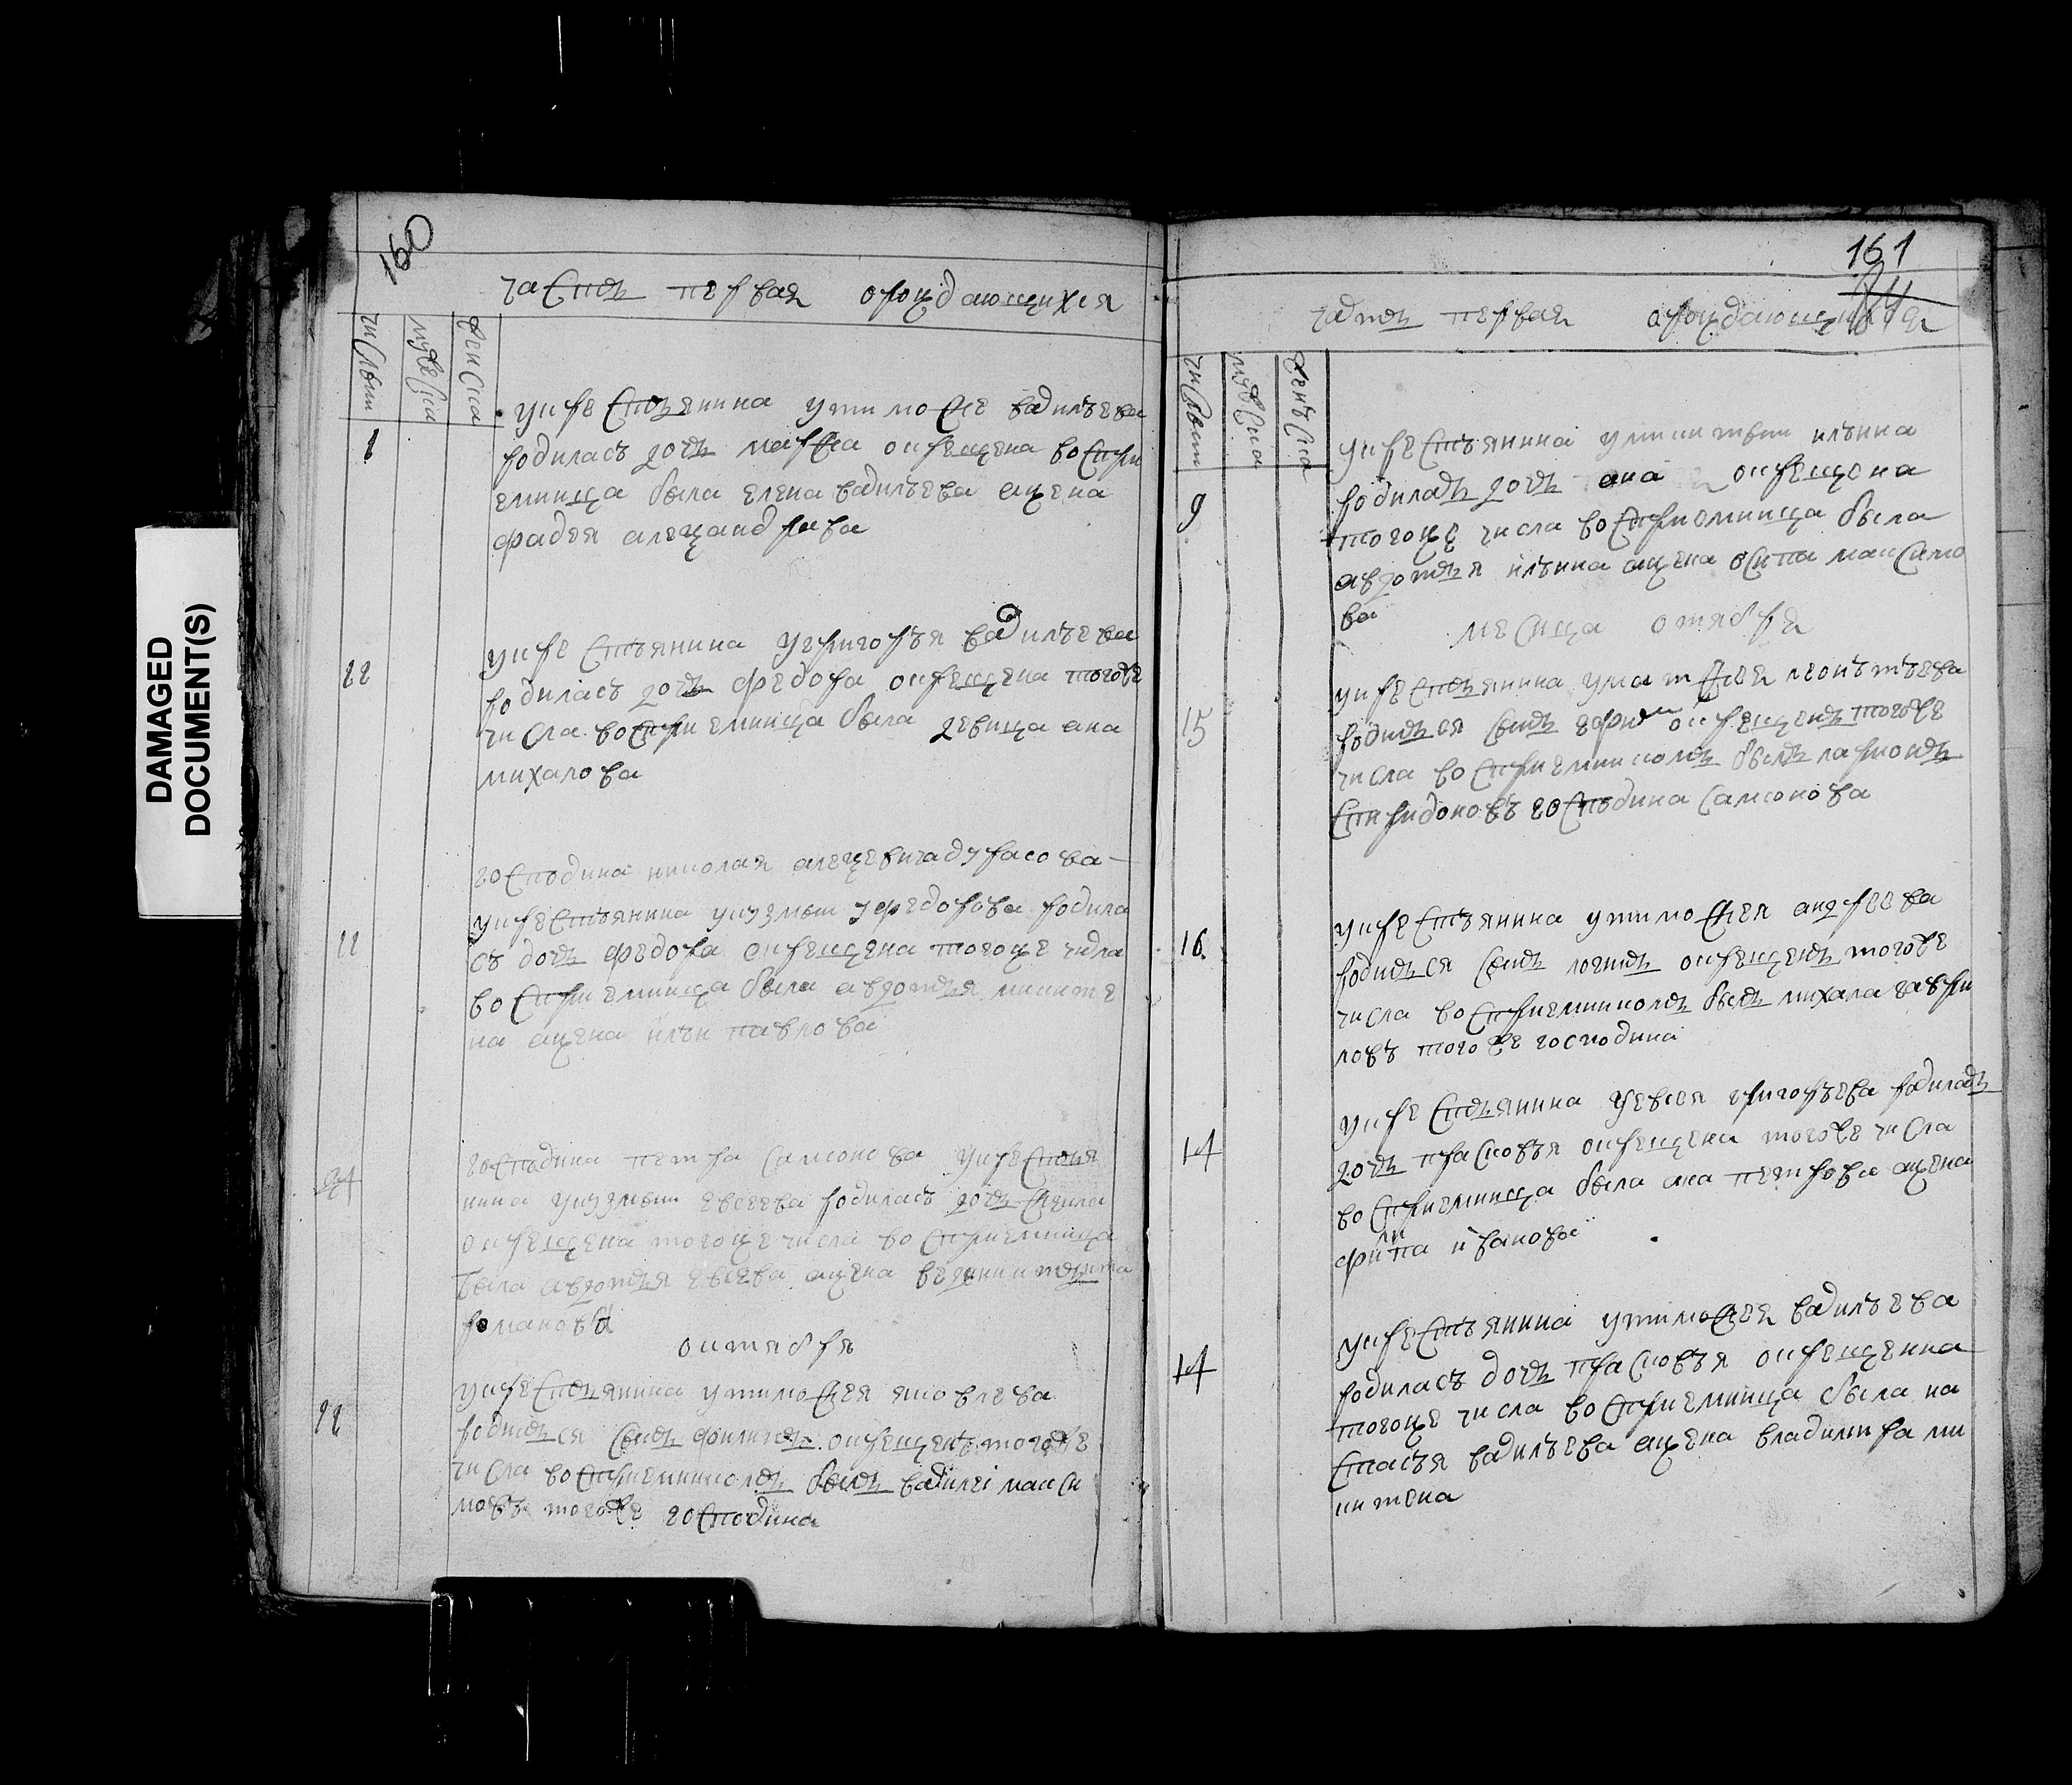 DAMAGED
DOCUMENT(S)
160
часть первая орождающихся
числы
мужеска
женска
укрестьянина утимофе василъева
1
родиласъ дочь марфа окрещена воспри
емница была елена василъева ажена
фадея алеѯандрова
укрестъянина угригоръя василъева
22
родиласъ дочь федора окрещена тогоже
числа восприемница была девица ана
михалова
господина николая алеѯевича дурасова
укрестъянина укузмы федорова родила
22
съ дочь федора окрещена тогоже числа
восприемница была авдотья никите
на ажена илъи павлова
господина петра самсонова укрестья
24
нина укузмы евсеева родиласъ дочь
окрещена тогоже числа восприемница
была авдотья евсева ажена
романова
октября
укрестьянина утимофея яковлева
родился сынь филипь окрещенъ тогоже
числа восприемникомь былъ василеі макси
мовъ тогоже господина
161
часть первая арождающихся
числы
мужеска
женъска
укрестъянина уникиты илъина
родилась дочь ана окрещена
9
тогоже числа восприемница была
авдотья илъина ажена осипа максимо
ва
месица отября
укрестьянина уматфея леонътъева
15
родился сынь ефим окрещень тогоже
числа восприемникомь былъ ларионъ
спиридоновъ господина самсонова
укрестъянина утимофея андреева
16.
родился сынь логинь окрещень тогоже
числа восприемникомь былъ михала гаври
ловъ тогоже господина
укрестьянина уевсея григоръева родилась
14
дочь прасковъя окрещена тогоже числа
восприемница была ана петрова ажена
филипа иванова
укрестъянина утимофея василъева
14
родиласъ дочь прасковъя окрещенна
тогоже числа восприемница была на
стасъя василъева ажена владимира ми
китена